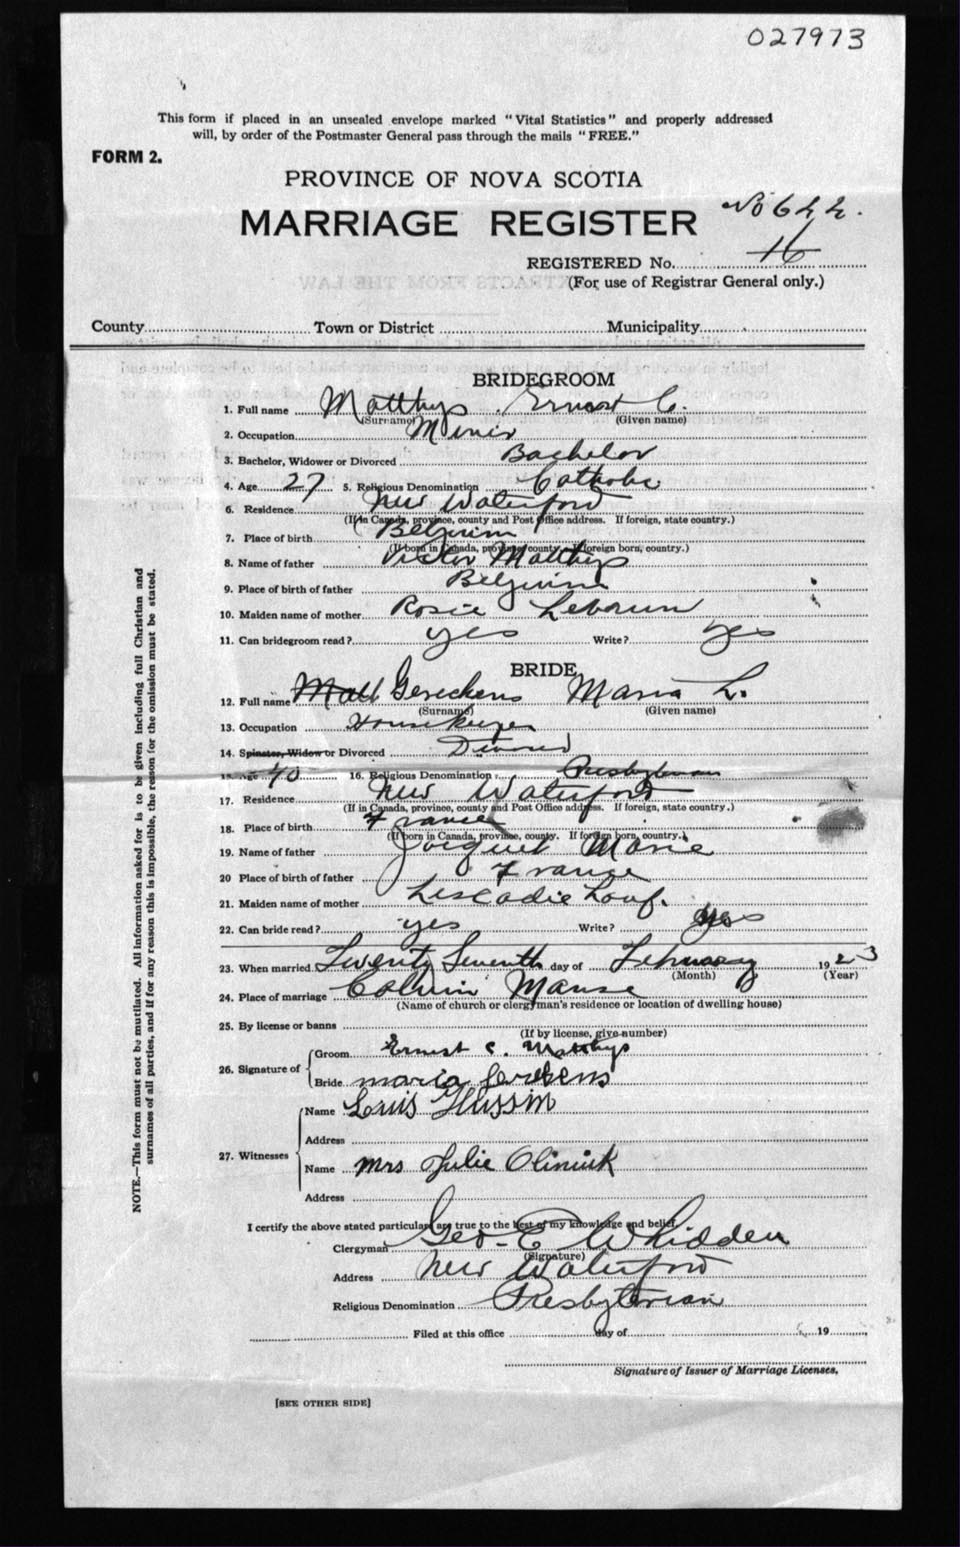 027973
This form if placed in an unsealed envelope marked "Vital Statistics" and properly addressed
will, by order of the Postmaster General pass through the mails "FREE."
FORM 2.
PROVINCE OF NOVA SCOTIA
MARRIAGE REGISTER No 622.
REGISTERED No. 16
(For use of Registrar General only.)
County Town or District Municipality
BRIDEGROOM
1. Full name Matthys Ernest C.
(Surname) (Given name)
2. Occupation Miner
3. Bachelor, Widower or Divorced Bachelor
4. Age 27 5. Religious Denomination Catholic
6. Residence New Waterford
(If in Canada, province, county and Post Office address. If foreign, state country.)
7. Place of birth Belgium
(If born in Canada, province, county. If foreign born, country.)
8. Name of father Victor Matthys
9. Place of birth of father Belgium
10. Maiden name of mother Rosie Lebrun
11. Can bridegroom read? yes Write? yes
BRIDE
12. Full name Matt Gereckens Maria L.
(Surname) (Given name)
13. Occupation Housekeeper
14. Spinster, Widow or Divorced Divorced
15. Age 40 16. Religious Denomination Presbyterian
17. Residence New Waterford
(If in Canada, province, county and Post Office address. If foreign, state country.)
18. Place of birth France
(If born in Canada, province, county. If foreign born, country.)
19. Name of father Marie
20 Place of birth of father France
21. Maiden name of mother
22. Can bride read? yes Write? yes
23. When married Twenty Seventh day of February 1923
(Month) (Year)
24. Place of marriage Manse
(Name of church or clergyman's residence or location of dwelling house)
25. By license or banns
(If by license, give number)
26. Signature of
Groom Ernest C. Matthys
Bride maria Gerekens
27. Witnesses
Name Louis
Address
Name Mrs Julie Oliniuk
Address
I certify the above stated particulars are true to the best of my knowledge and belief.
Clergyman Geo. E Whidden
(Signature)
Address New Waterford
Religious Denomination Presbyterian
Filed at this office day of 19
Signature of Issuer of Marriage Licenses.
[SEE OTHER SIDE]
NOTE.—This form must not be mutilated. All information asked for is to be given including full Christian and
surnames of all parties, and if for any reason this is impossible, the reason for the omission must be stated.